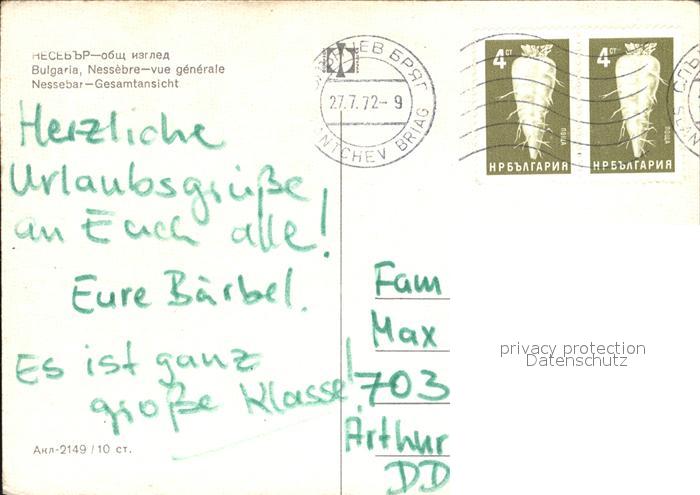 НЕСЕБЪР—общ изглед
Bulgaria, Nessèbre—vue générale
Nessebar—Gesamtansicht
БРЯГ
27.7.72-9
NTCHEV BRIAG
4 СТ
НРБЪЛГАРИЯ
4 СТ
НРБЪЛГАРИЯ
Herzliche
Urlaubsgrüße
an Euch alle!
Eure Bärbel.
Es ist ganz
große Klasse!
Fam
Max
703
Arthur
DD
privacy protection
Datenschutz
Акл-2149 / 10 ст.